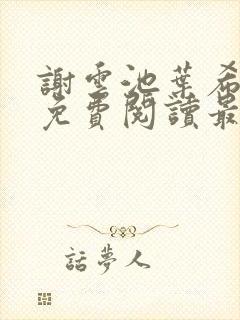 謝雲池葉希
免費閱讀最
話夢人